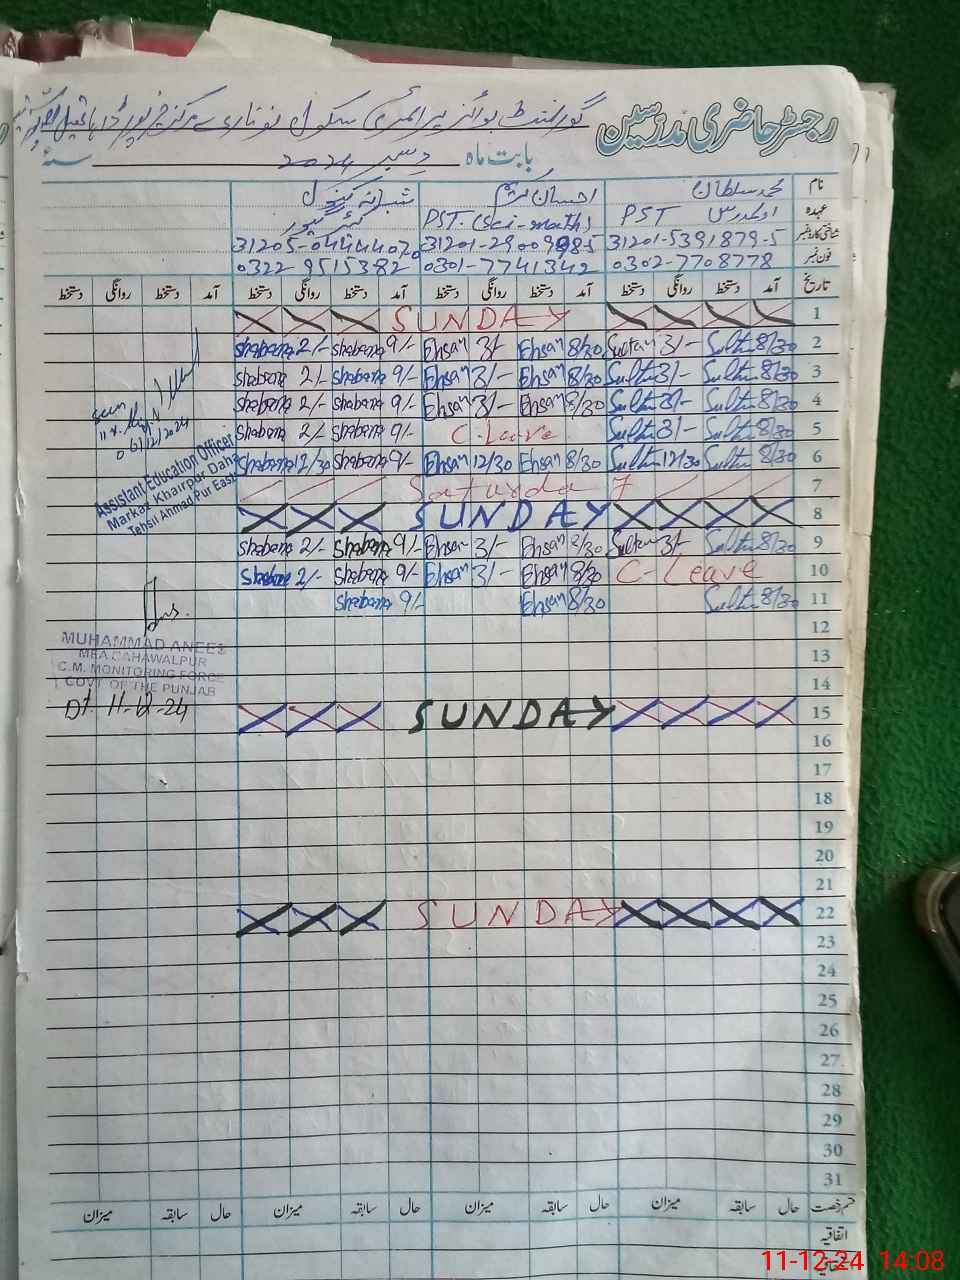 رجسٹر حاضری مدرسین گورنمنٹ بوائز پرائمری سکول نوناری مرکز خیرپور ڈاہا
بابت ماہ دسمبر 2024 سنہ
نام محمد سلطان احسان شبانہ کنول
عہدہ PST PST. (Sci-math) کیئر گیور
شناختی کارڈ نمبر 31201-5391879-5 31201-2900998-5 31205-0444407-0
فون نمبر 0302-7708778 0301-7741342 0322-9515382
تاریخ آمد دستخط روانگی دستخط آمد دستخط روانگی دستخط آمد دستخط روانگی دستخط آمد دستخط روانگی دستخط
1 SUNDAY
2 8/30 Sultan 3/- Sultan 8/30 Ehsan 3/- Ehsan 9/- Shabana 2/- Shabana
3 8/30 Sultan 3/- Sultan 8/30 Ehsan 3/- Ehsan 9/- Shabana 2/- Shabana
4 8/30 Sultan 3/- Sultan 8/30 Ehsan 3/- Ehsan 9/- Shabana 2/- Shabana
5 8/30 Sultan 3/- Sultan C-Leave 9/- Shabana 2/- Shabana
6 8/30 Sultan 12/30 Sultan 8/30 Ehsan 12/30 Ehsan 9/- Shabana 12/30 Shabana
7 Saturday
8 SUNDAY
9 8/30 Sultan 3/- Sultan 8/30 Ehsan 3/- Ehsan 9/- Shabana 2/- Shabana
10 C-Leave 8/30 Ehsan 3/- Ehsan 9/- Shabana 2/- Shabana
11 8/30 Sultan 8/30 Ehsan 9/- Shabana
12
13
14
15 SUNDAY
16
17
18
19
20
21
22 SUNDAY
23
24
25
26
27
28
29
30
31
seen
06/12/2024
Assistant Education Officer
Markaz Khairpur Daha
Tehsil Ahmad Pur East
MUHAMMAD ANEES
MEA BAHAWALPUR
C.M. MONITORING FORCE
GOVT OF THE PUNJAB
Dt. 11-12-24
قسم رخصت حال سابقہ میزان حال سابقہ میزان حال سابقہ میزان حال سابقہ میزان
اتفاقیہ
11-12-24 14:08